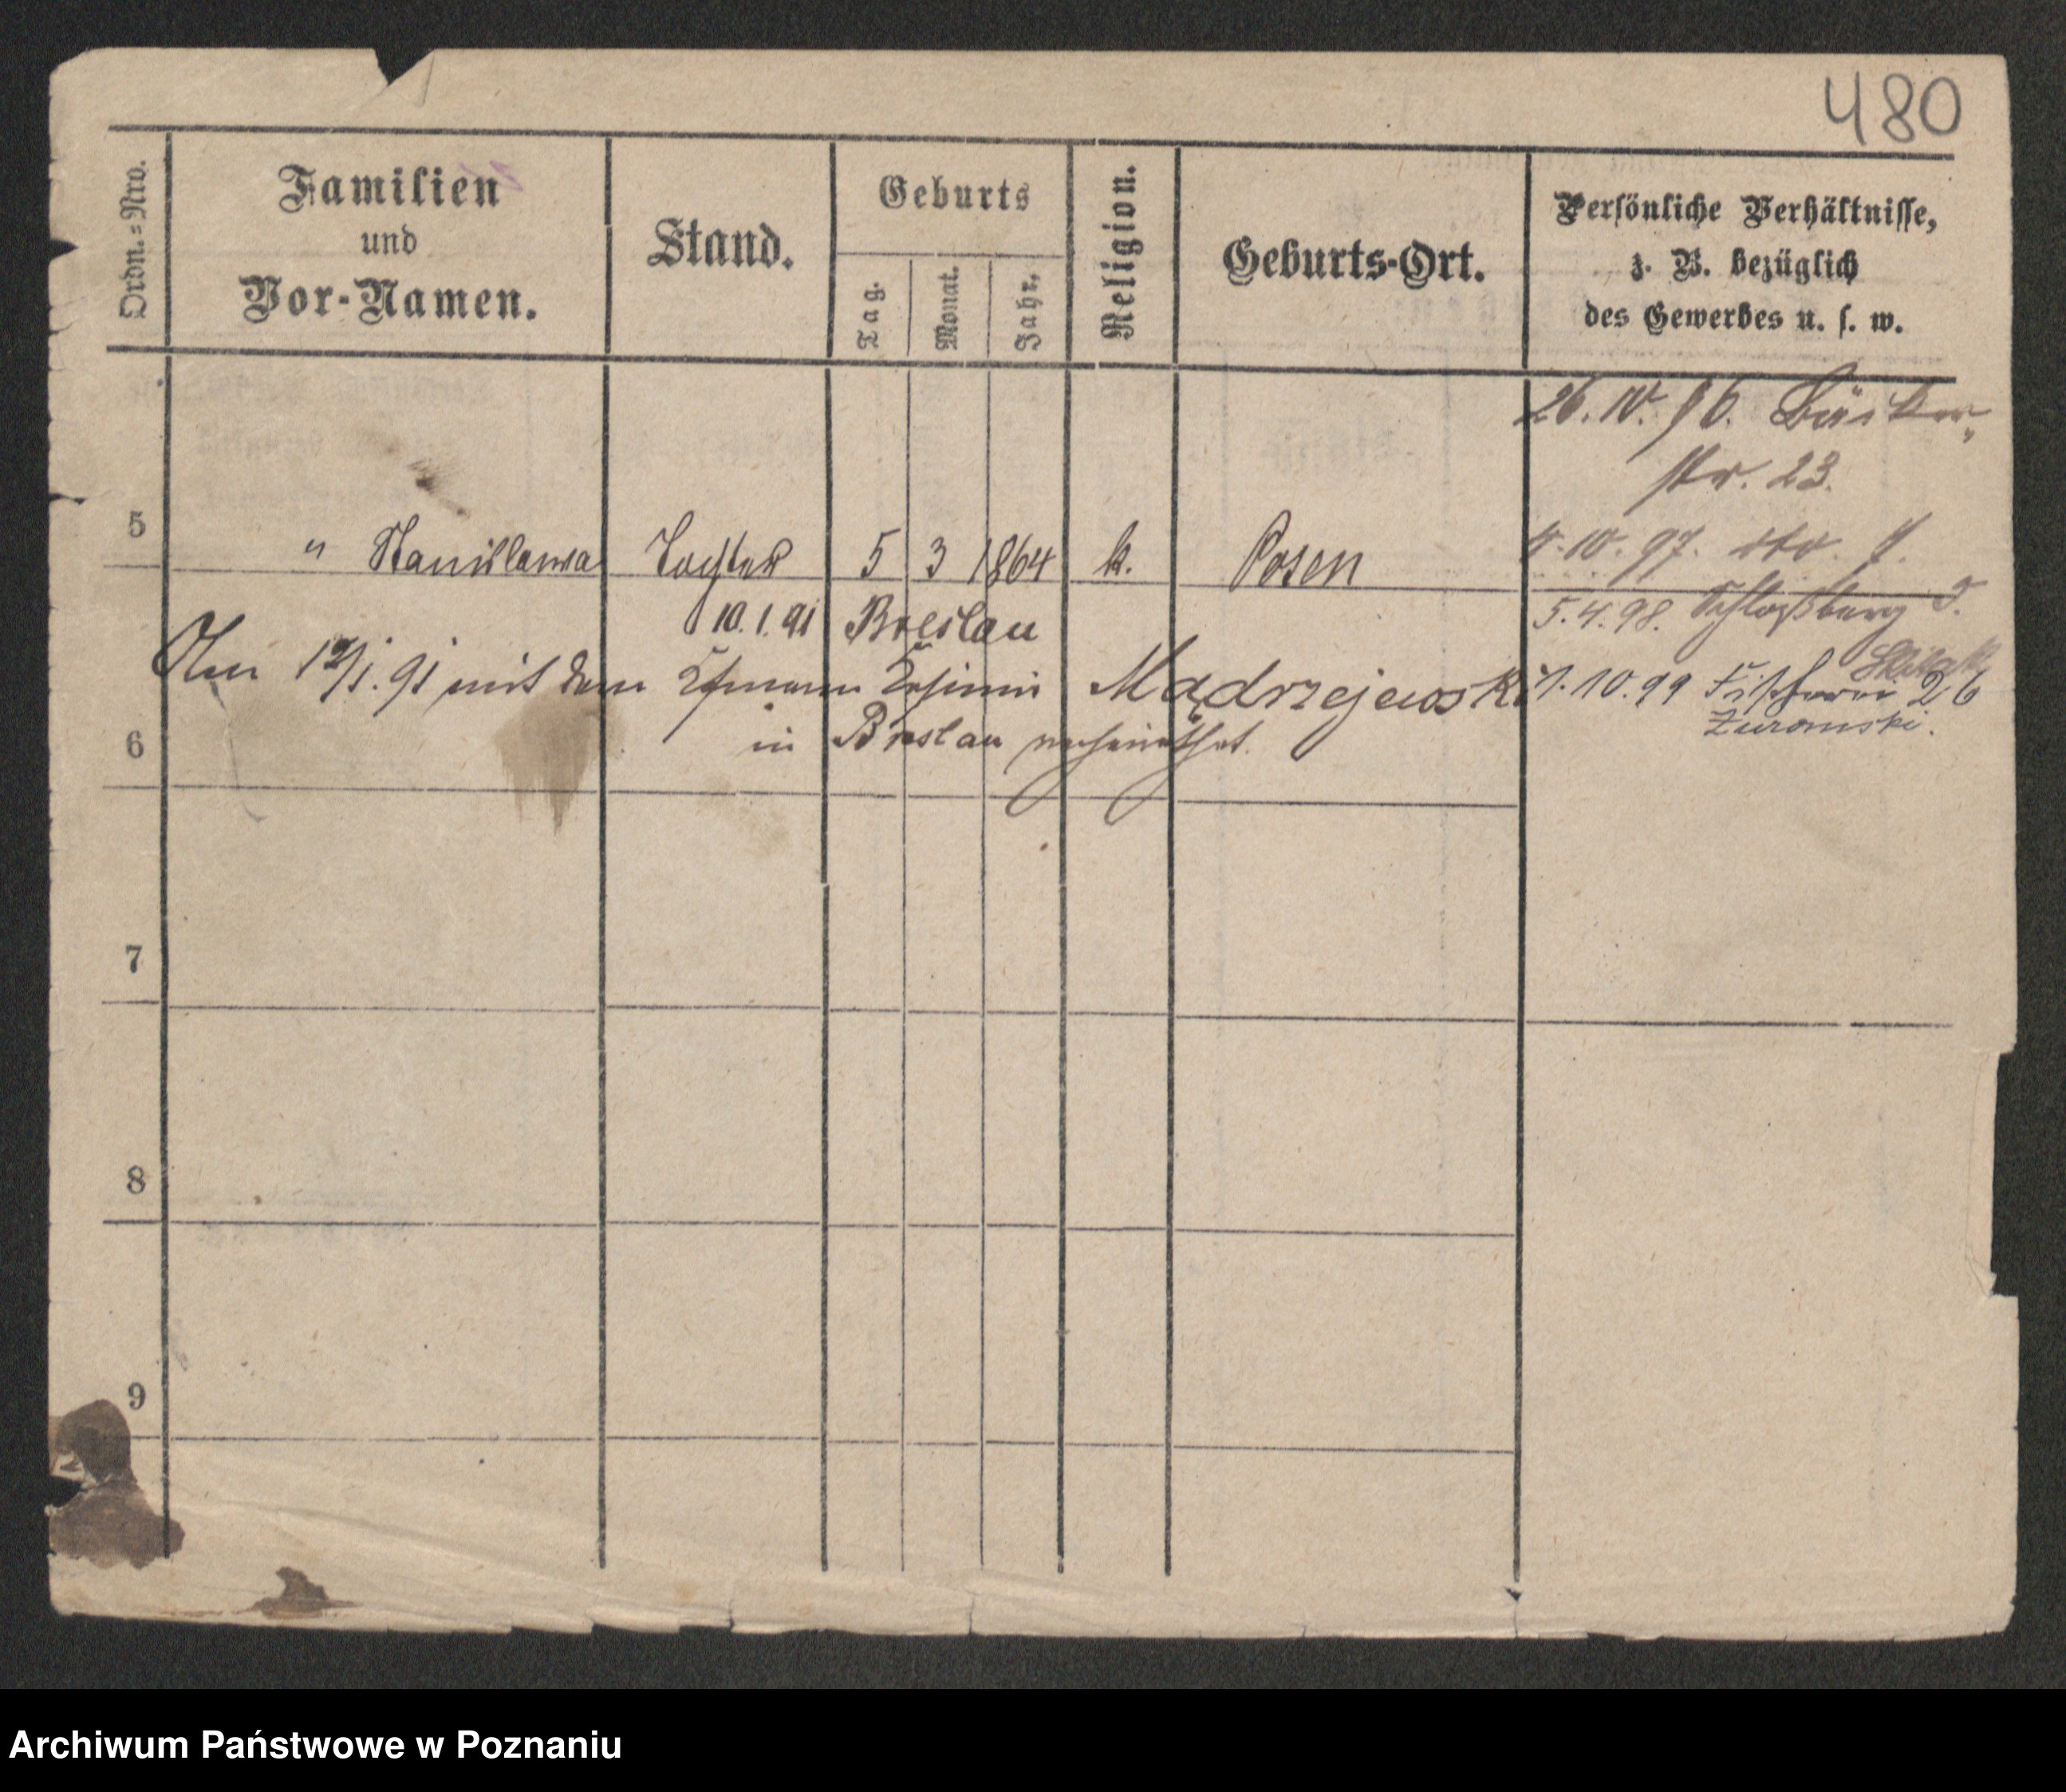 480
Ordn.=Nro.
Familien
und
Vor-Namen.
Stand.
Geburts
Tag.
Monat.
Jahr.
Religion.
Geburts-Ort.
Persönliche Verhältnisse,
z. B. bezüglich
des Gewerbes u. s. w.
26.10.96. Bäcker
str. 23.
5 " Stanislawa Tochter 5 3 1864 k. Posen
10.97. dto.
10.1.91 Breslau
5.4.98. Schloßberg 3.
Am 12/1.91 mit dem Mądrzejewski
1.10.99 Fischerei 26
Zuromski.
6 in Breslau verheirathet.
7
8
9
Archiwum Państwowe w Poznaniu